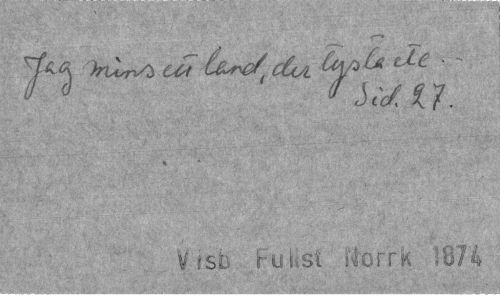 Jag mins ett land, der tysta etc...
Sid. 27.
Visb Fullst Norrk 1874